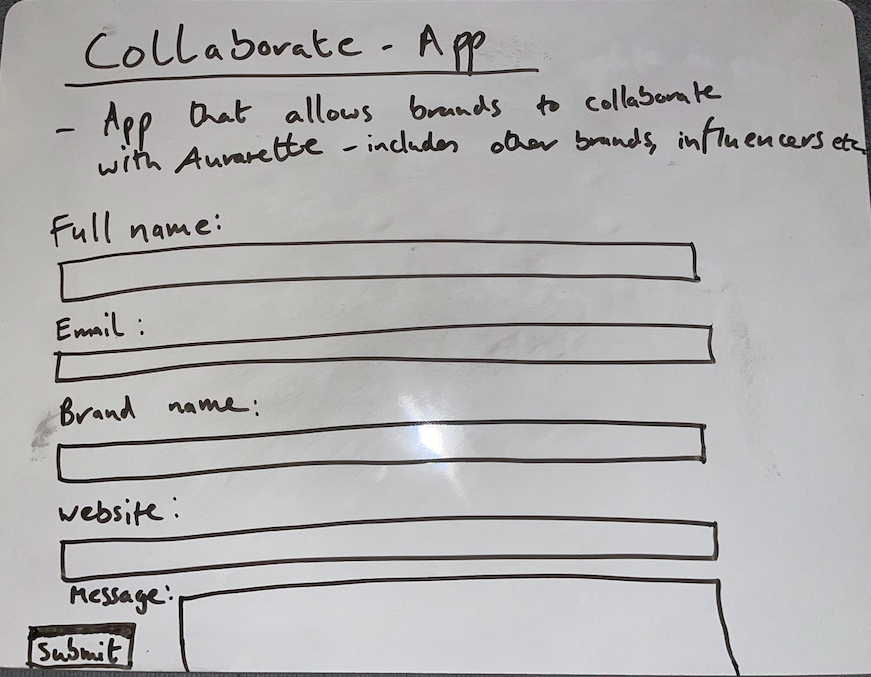 Collaborate - App
- App that allows brands to collaborate
with Aurarette - includes other brands, influencers etc
Full name:
Email:
Brand name:
website:
Message:
Submit